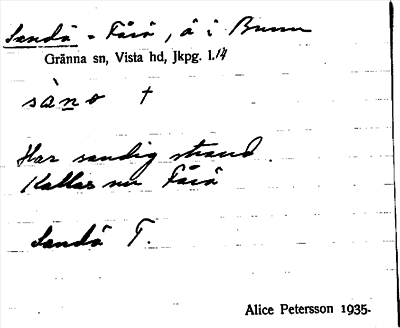 Sandö = Fårö, ö i Bunn
Gränna sn, Vista hd, Jkpg. l. 14
sàno †
Har sandig strand.
Kallas nu Fårö
Sandö T.
Alice Petersson 1935.